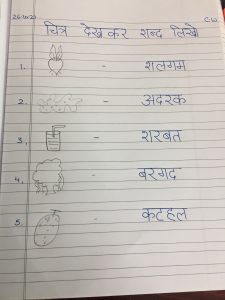 C.W
चित्र देख कर शब्द लिखो
1. - शलगम
2. - अदरक
3. - शरबत
4. - बरगद
5. - कटहल